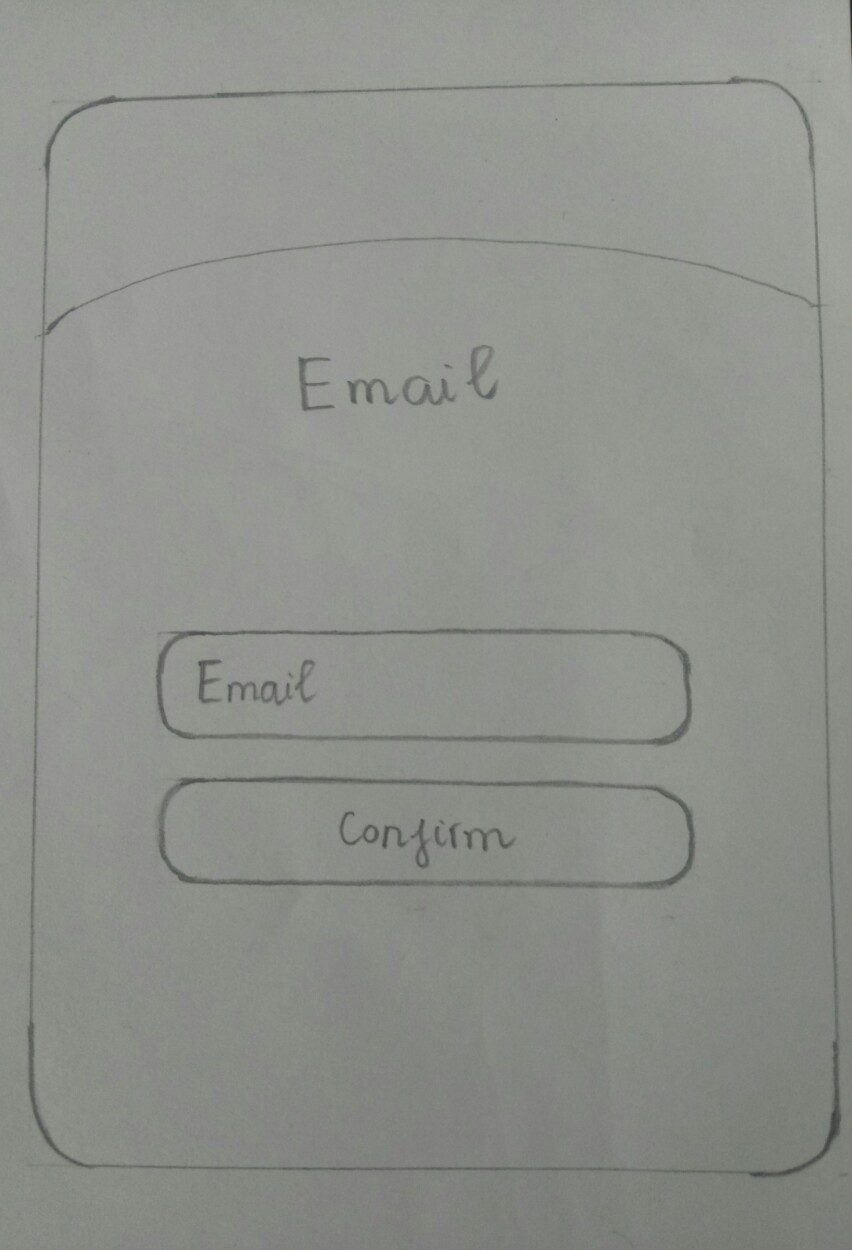 Email
Email
Confirm